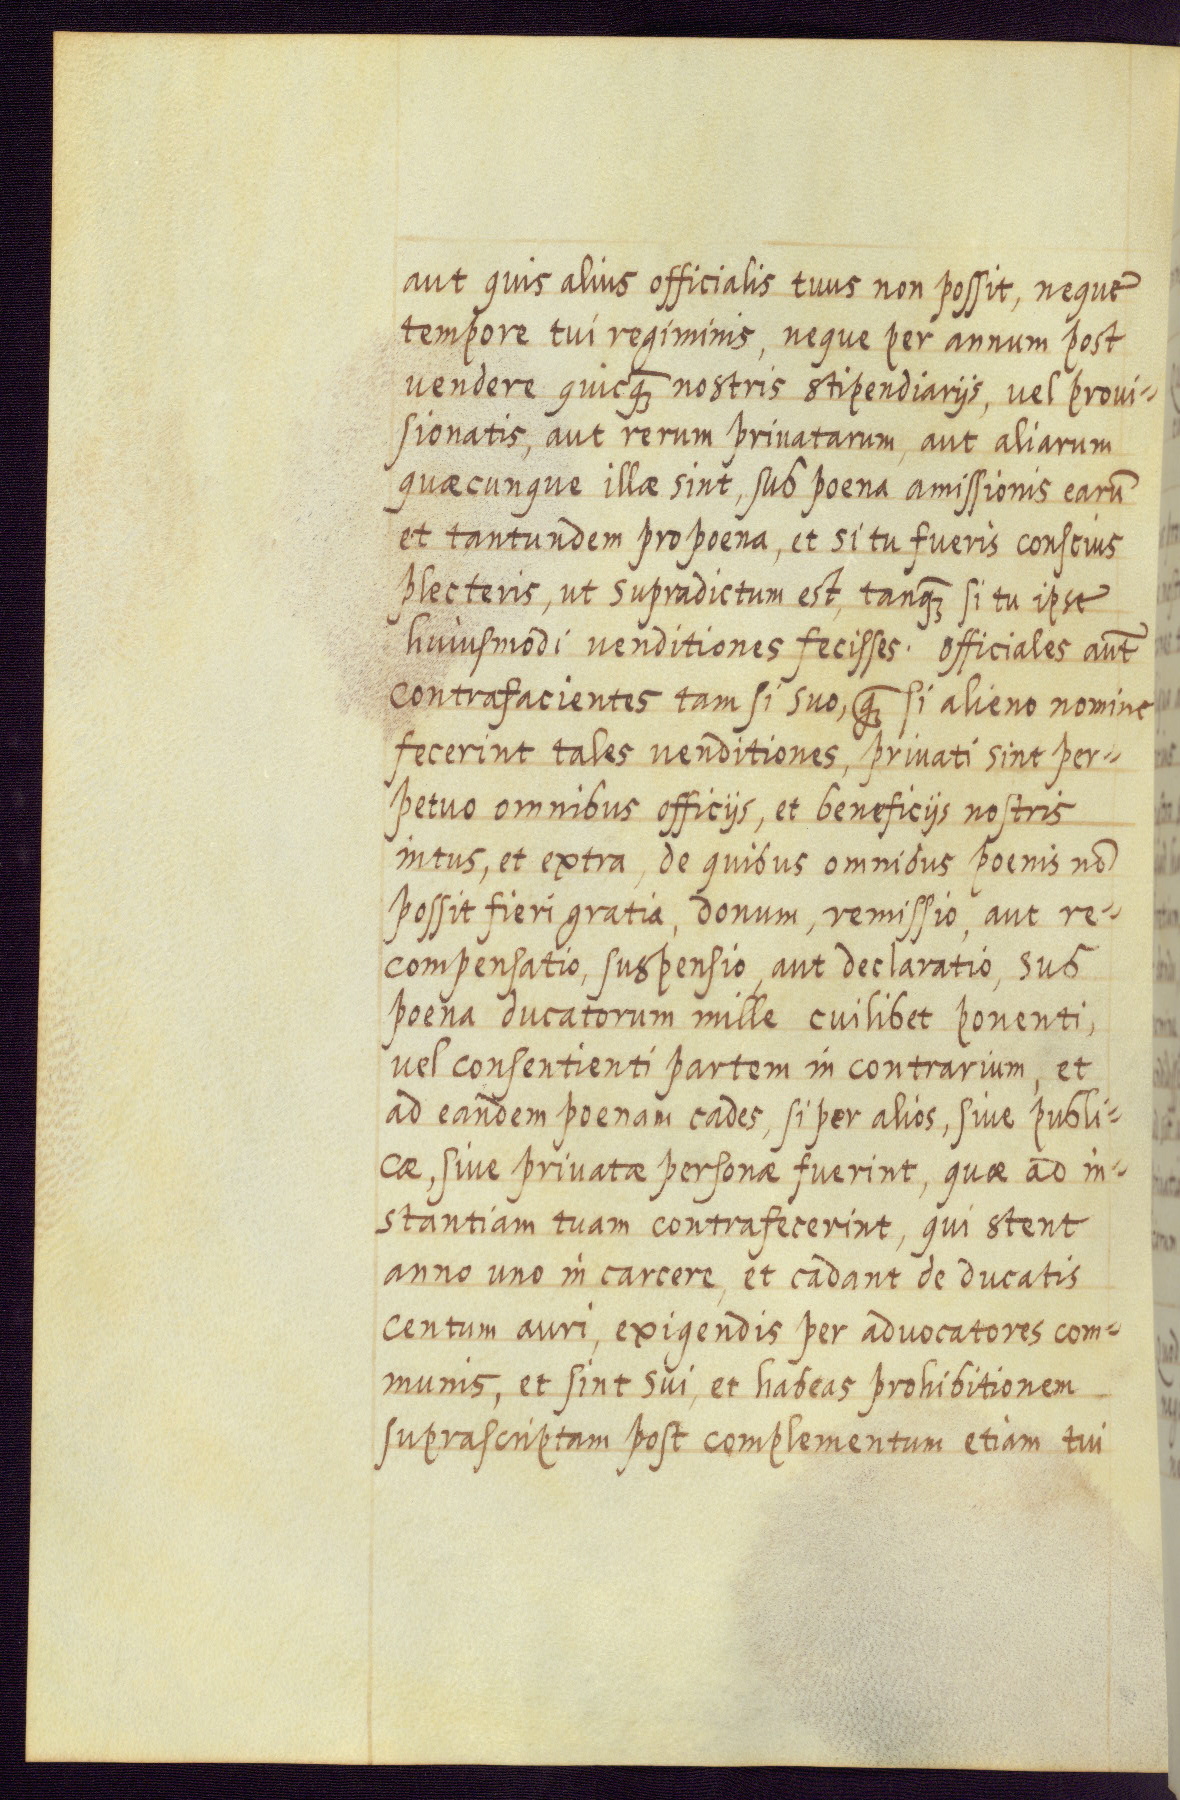 aut quis alius officialis tuus non possit, neque
tempore tui regiminis, neque per annum post
vendere quicq̃ꝫ nostris stipendiarijs, vel provi-
sionatis, aut rerum privatarum, aut aliarum
quæcunque illæ sint, sub poena amissionis earū
et tantundem pro poena, et si tu fueris conscius
plecteris, ut supradictum est, tanq̃ꝫ si tu ipse
huiusmodi venditiones fecisses. officiales aut̃
contrafacientes tam si suo, q̃ꝫ si alieno nomine
fecerint tales venditiones, privati sint per-
petuo omnibus officijs, et beneficijs nostris
intus, et extra, de quibus omnibus poenis nō
possit fieri gratia, donum, remissio, aut re-
compensatio, suspensio, aut declaratio, sub
poena ducatorum mille cuilibet ponenti,
vel consentienti partem in contrarium, et
ad eandem poenam cades, si per alios, sive publi-
cæ, sive privatæ personæ fuerint, quæ ad in-
stantiam tuam contrafecerint, qui stent
anno uno in carcere, et cadant de ducatis
centum auri, exigendis per advocatores com-
munis, et sint sui, et habeas prohibitionem
suprascriptam post complementum etiam tui